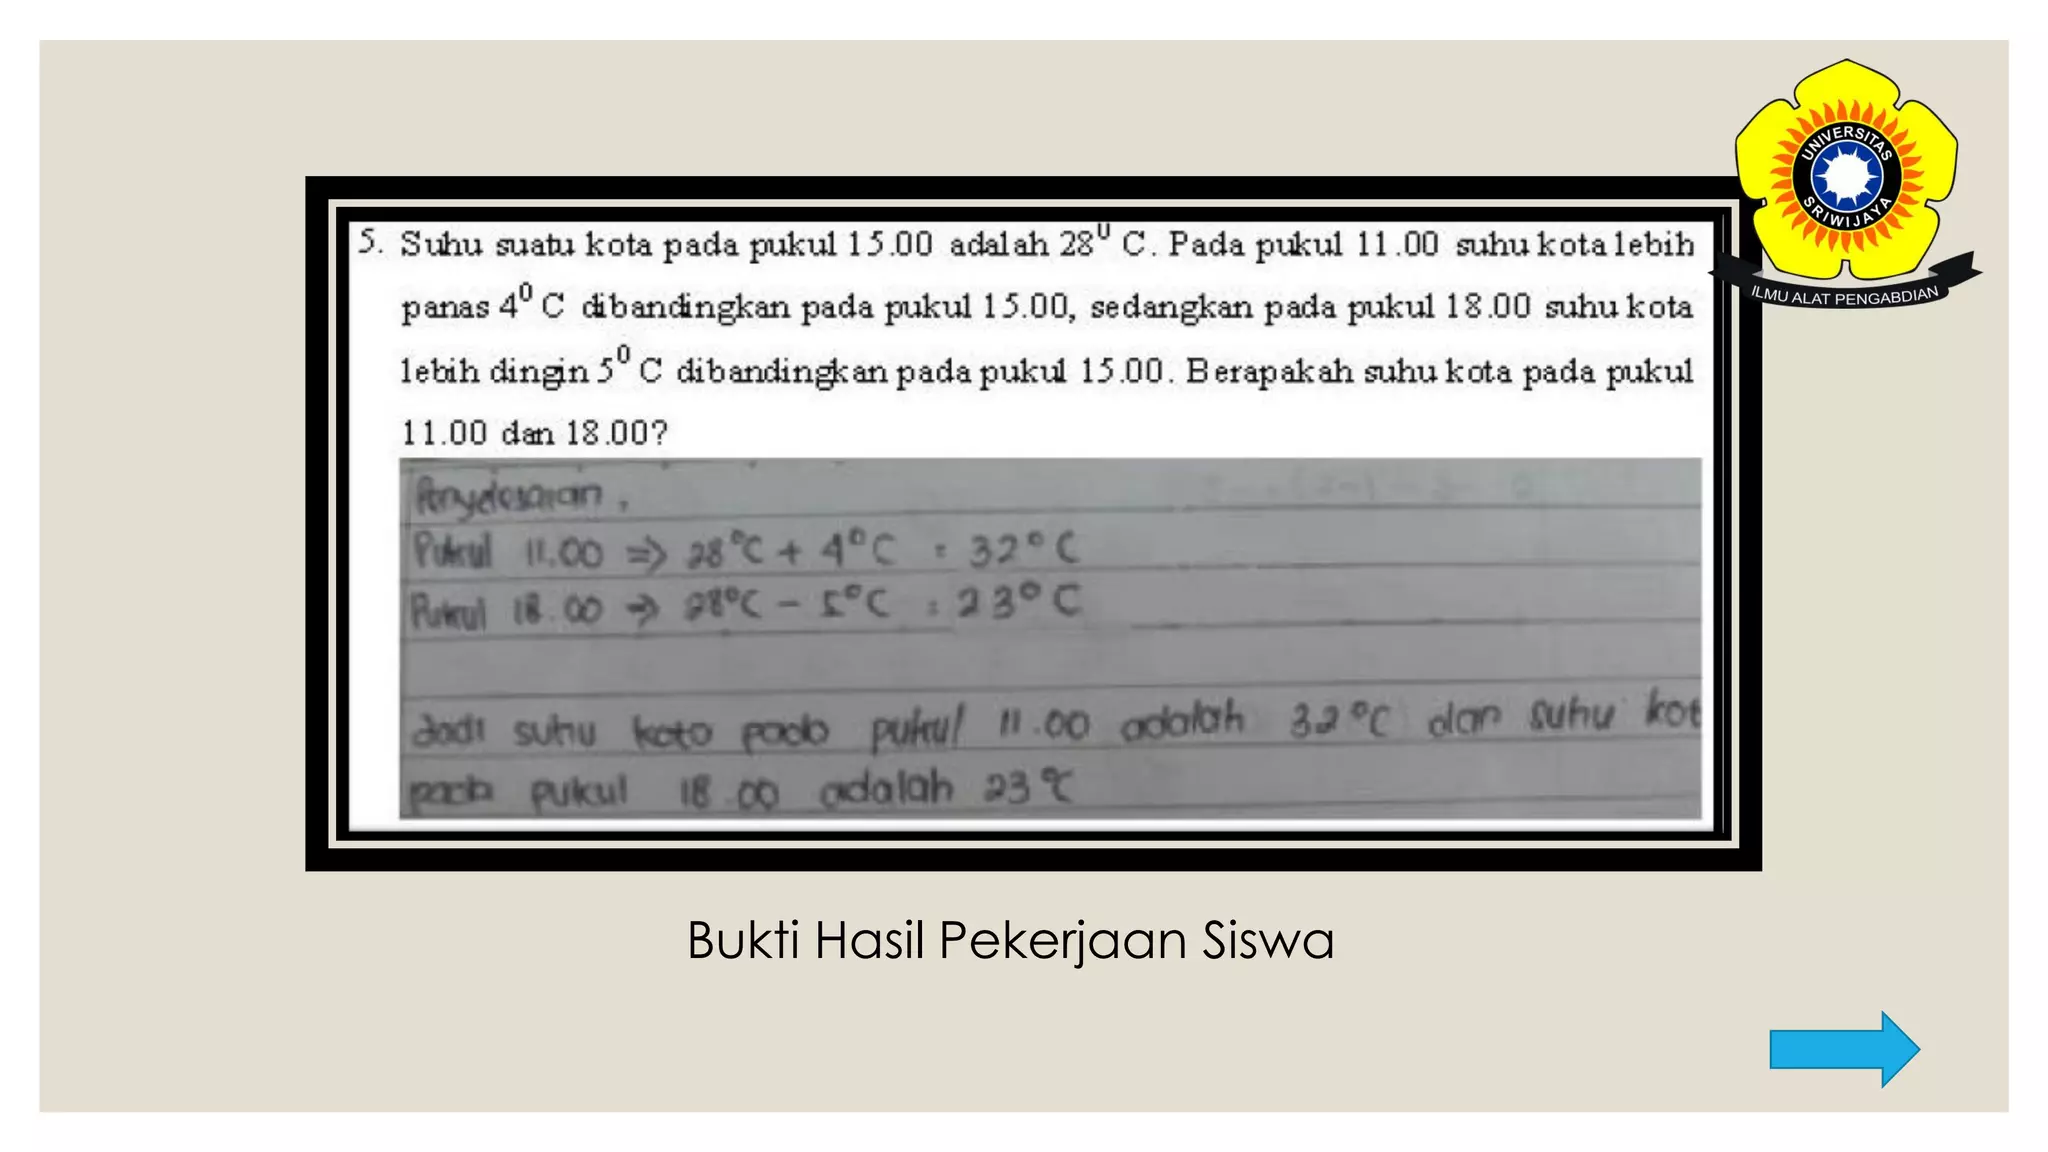 5. Suhu suatu kota pada pukul 15.00 adalah 28⁰ C. Pada pukul 11.00 suhu kota lebih
panas 4⁰ C dibandingkan pada pukul 15.00, sedangkan pada pukul 18.00 suhu kota
lebih dingin 5⁰ C dibandingkan pada pukul 15.00. Berapakah suhu kota pada pukul
11.00 dan 18.00?
Penyelesaian,
Pukul 11.00 => 28°C + 4°C = 32°C
Pukul 18.00 => 28°C - 5°C = 23°C
Jadi suhu kota pada pukul 11.00 adalah 32°C dan suhu kot
pada pukul 18.00 adalah 23°C
UNIVERSITAS
SRIWIJAYA
ILMU ALAT PENGABDIAN
Bukti Hasil Pekerjaan Siswa